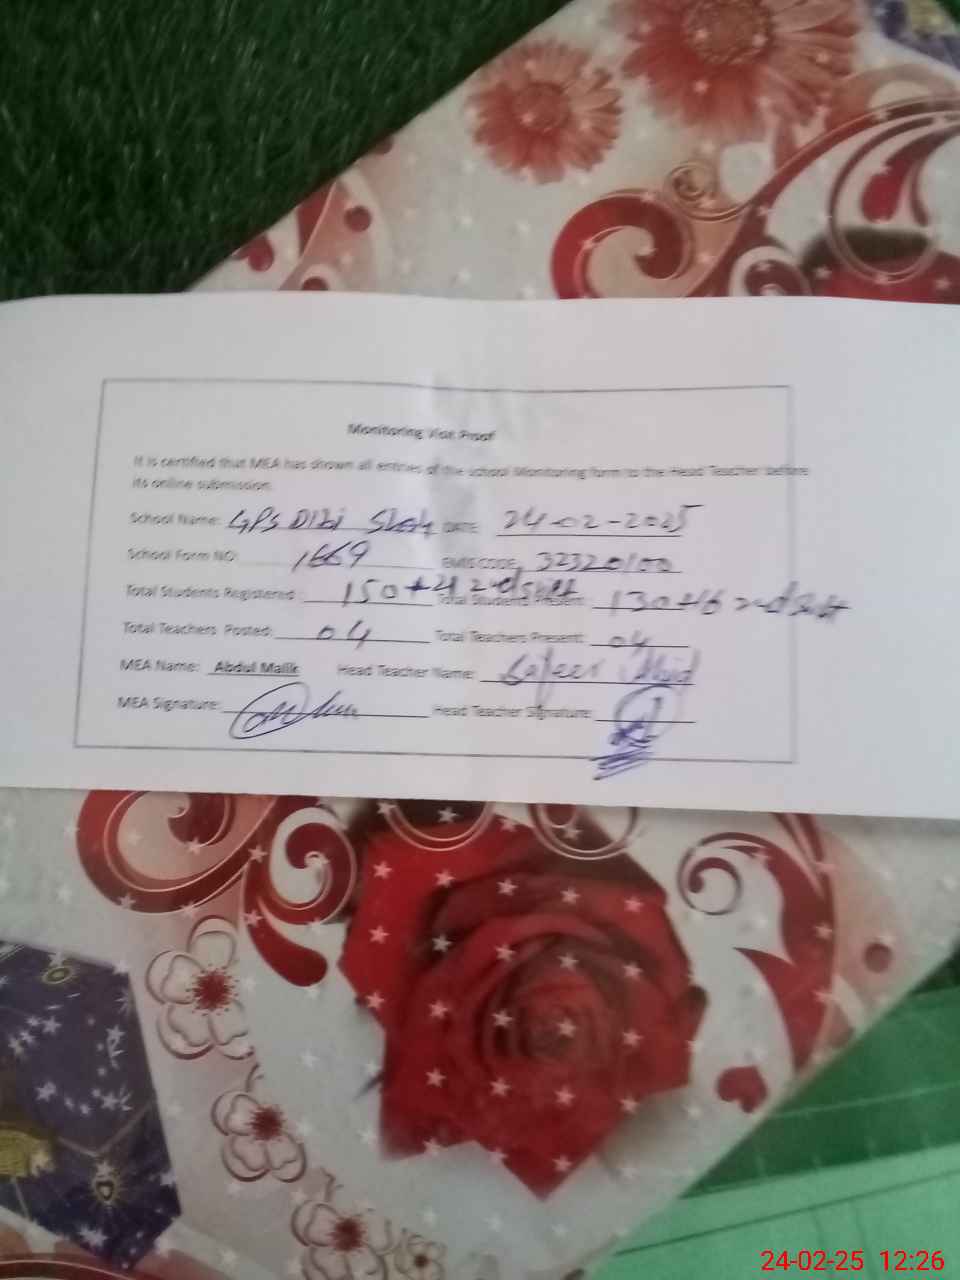 Monitoring Visit Proof
It is certified that MEA has shown all entries of the school Monitoring form to the Head Teacher before
its online submission.
School Name: GPS DATE: 24-02-2025
School Form NO: 1669 EMIS CODE: 32320100
Total Students Registered: 150+21 2nd shift Total Students Present: 130+16 2nd shift
Total Teachers Posted: 04 Total Teachers Present: 04
MEA Name: Abdul Malik Head Teacher Name:
MEA Signature: Head Teacher Signature:
24-02-25 12:26